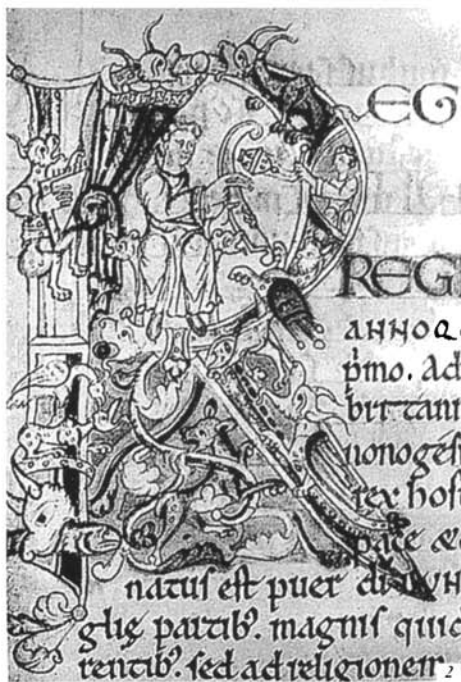 REG
REG
ANNO Q
p̄mo. Ad
britann
nonogesi
rex host
pace
natus est puer
glię partib'. magnis quid
rentib'. sed ad religionem
2